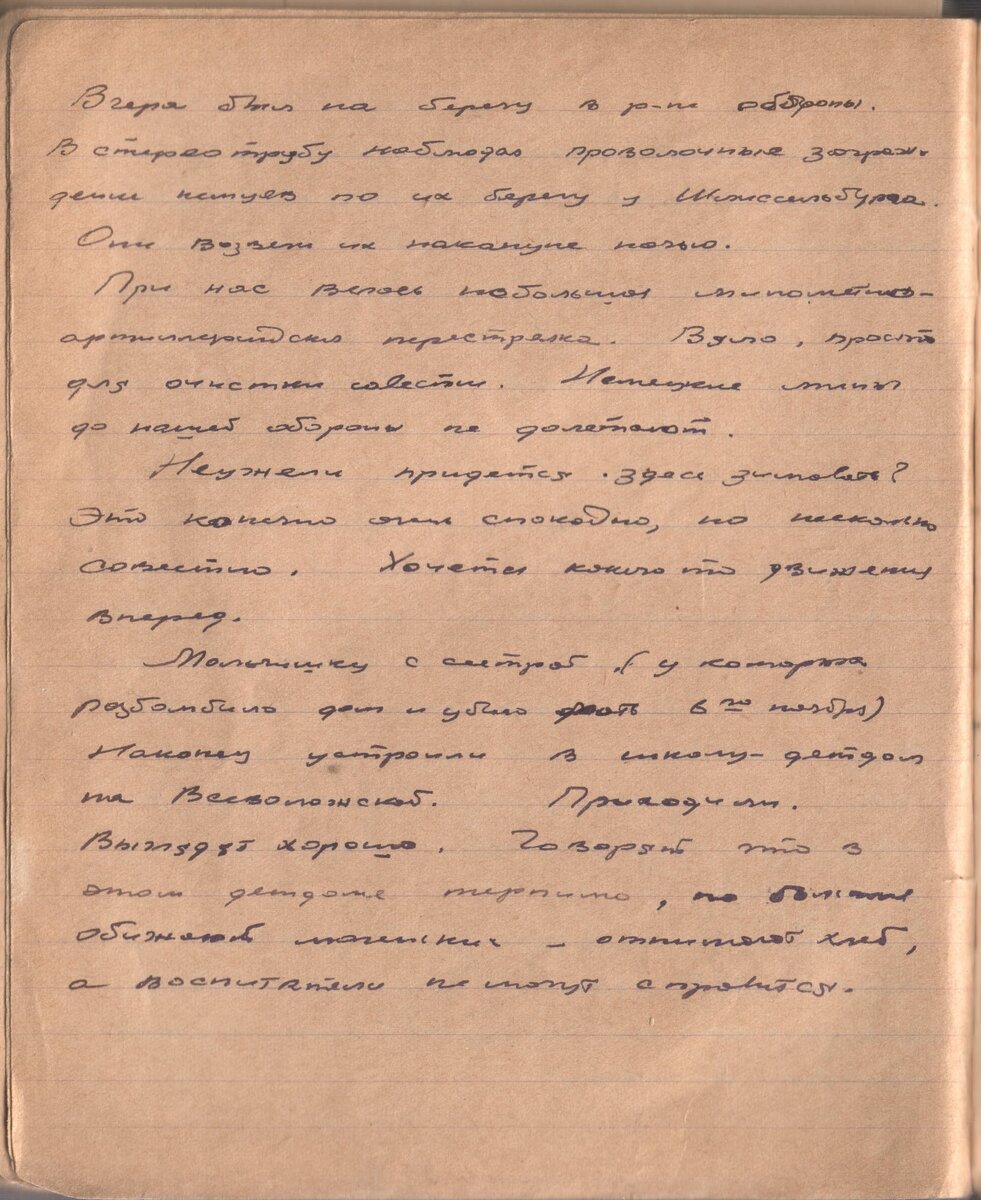 Вчера был на берегу в р-не обороны.
В стереотрубу наблюдал проволочные заграж-
дения немцев по их берегу у Шлиссельбурга.
Они возвели их накануне ночью.
При нас велась небольшая минометно-
артиллерийская перестрелка. Вяло, просто
для очистки совести. Немецкие мины
до нашей обороны не долетают.
Неужели придется здесь зимовать?
Это конечно очень спокойно, но несколько
совестно. Хочется какого то движения
вперед.
Мальчишку с сестрой (у которых
разбомбило дом и убило мать 6го ноября)
Наконец устроили в школу-детдом
на Всеволожской. Приходили.
Выглядят хорошо. Говорят что в
этом детдоме терпимо, но большие
обижают маленьких – отнимают хлеб,
а воспитатели не могут справится.